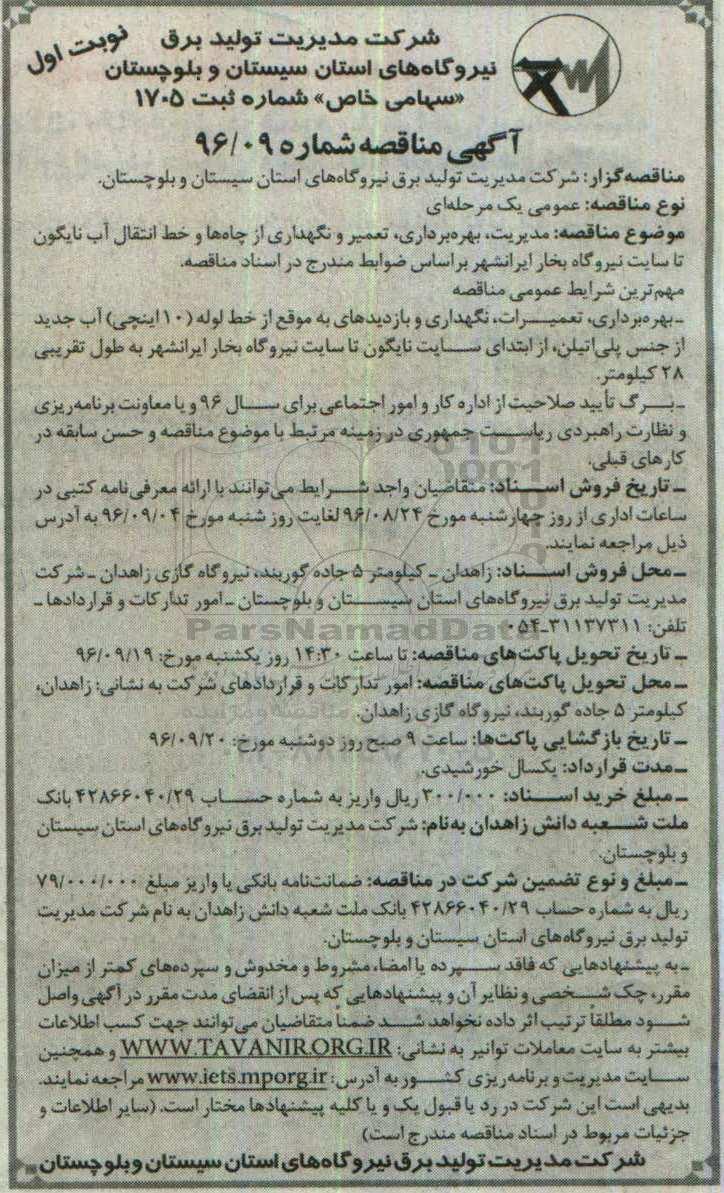 نوبت اول
شرکت مدیریت تولید برق
نیروگاه‌های استان سیستان و بلوچستان
«سهامی خاص» شماره ثبت ۱۷۰۵
آگهی مناقصه شماره ۹۶/۰۹
مناقصه‌گزار: شرکت مدیریت تولید برق نیروگاه‌های استان سیستان و بلوچستان.
نوع مناقصه: عمومی یک مرحله‌ای
موضوع مناقصه: مدیریت، بهره‌برداری، تعمیر و نگهداری از چاه‌ها و خط انتقال آب نایگون
تا سایت نیروگاه بخار ایرانشهر براساس ضوابط مندرج در اسناد مناقصه.
مهم‌ترین شرایط عمومی مناقصه
ـ بهره‌برداری، تعمیرات، نگهداری و بازدیدهای به موقع از خط لوله (۱۰ اینچی) آب جدید
از جنس پلی‌اتیلن، از ابتدای سایت نایگون تا سایت نیروگاه بخار ایرانشهر به طول تقریبی
۲۸ کیلومتر.
ـ برگ تأیید صلاحیت از اداره کار و امور اجتماعی برای سال ۹۶ و یا معاونت برنامه‌ریزی
و نظارت راهبردی ریاست جمهوری در زمینه مرتبط با موضوع مناقصه و حسن سابقه در
کارهای قبلی.
ـ تاریخ فروش اسناد: متقاضیان واجد شرایط می‌توانند با ارائه معرفی‌نامه کتبی در
ساعات اداری از روز چهارشنبه مورخ ۹۶/۰۸/۲۴ لغایت روز شنبه مورخ ۹۶/۰۹/۰۴ به آدرس
ذیل مراجعه نمایند.
ـ محل فروش اسناد: زاهدان ـ کیلومتر ۵ جاده گوربند، نیروگاه گازی زاهدان ـ شرکت
مدیریت تولید برق نیروگاه‌های استان سیستان و بلوچستان ـ امور تدارکات و قراردادها ـ
تلفن: ۳۱۱۳۷۳۱۱-۰۵۴
ParsNamadData
ـ تاریخ تحویل پاکت‌های مناقصه: تا ساعت ۱۴:۳۰ روز یکشنبه مورخ: ۹۶/۰۹/۱۹
ـ محل تحویل پاکت‌های مناقصه: امور تدارکات و قراردادهای شرکت به نشانی: زاهدان،
کیلومتر ۵ جاده گوربند، نیروگاه گازی زاهدان.
ـ تاریخ بازگشایی پاکت‌ها: ساعت ۹ صبح روز دوشنبه مورخ: ۹۶/۰۹/۲۰
ـ مدت قرارداد: یکسال خورشیدی.
ـ مبلغ خرید اسناد: ۳۰۰/۰۰۰ ریال واریز به شماره حساب ۴۲۸۶۶۰۴۰/۲۹ بانک
ملت شعبه دانش زاهدان به‌نام: شرکت مدیریت تولید برق نیروگاه‌های استان سیستان
و بلوچستان.
ـ مبلغ و نوع تضمین شرکت در مناقصه: ضمانت‌نامه بانکی یا واریز مبلغ ۷۹/۰۰۰/۰۰۰
ریال به شماره حساب ۴۲۸۶۶۰۴۰/۲۹ بانک ملت شعبه دانش زاهدان به نام شرکت مدیریت
تولید برق نیروگاه‌های استان سیستان و بلوچستان.
ـ به پیشنهادهایی که فاقد سپرده یا امضا، مشروط و مخدوش و سپرده‌های کمتر از میزان
مقرر، چک شخصی و نظایر آن و پیشنهادهایی که پس از انقضای مدت مقرر در آگهی واصل
شود مطلقاً ترتیب اثر داده نخواهد شد ضمناً متقاضیان می‌توانند جهت کسب اطلاعات
بیشتر به سایت معاملات توانیر به نشانی: WWW.TAVANIR.ORG.IR و همچنین
سایت مدیریت و برنامه‌ریزی کشور به آدرس: www.iets.mporg.ir مراجعه نمایند.
بدیهی است این شرکت در رد یا قبول یک و یا کلیه پیشنهادها مختار است. (سایر اطلاعات و
جزئیات مربوط در اسناد مناقصه مندرج است)
شرکت مدیریت تولید برق نیروگاه‌های استان سیستان و بلوچستان